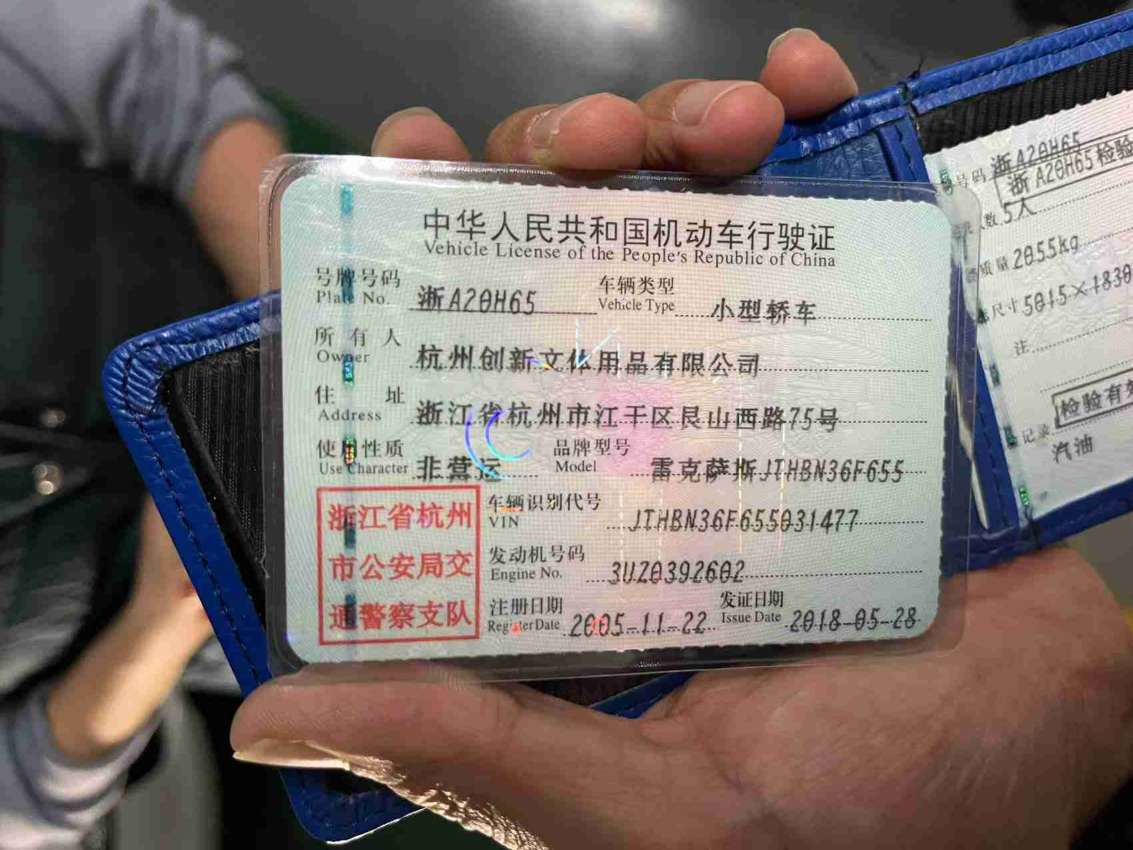 中华人民共和国机动车行驶证
Vehicle License of the People's Republic of China
号牌号码 浙A20H65 车辆类型 小型轿车
Plate No. Vehicle Type
所有人 杭州创新文体用品有限公司
Owner
住址 浙江省杭州市江干区艮山西路75号
Address
使用性质 非营运 品牌型号 雷克萨斯JTHBN36F655
Use Character Model
浙江省杭州
市公安局交
通警察支队
车辆识别代号 JTHBN36F655031477
VIN
发动机号码 3UZ0392602
Engine No.
注册日期 2005-11-22 发证日期 2018-05-28
Register Date Issue Date
号码 浙A20H65
浙A20H65检验
人数 5人
质量 2055kg
尺寸 5015×1830
注
检验有效
记录
汽油